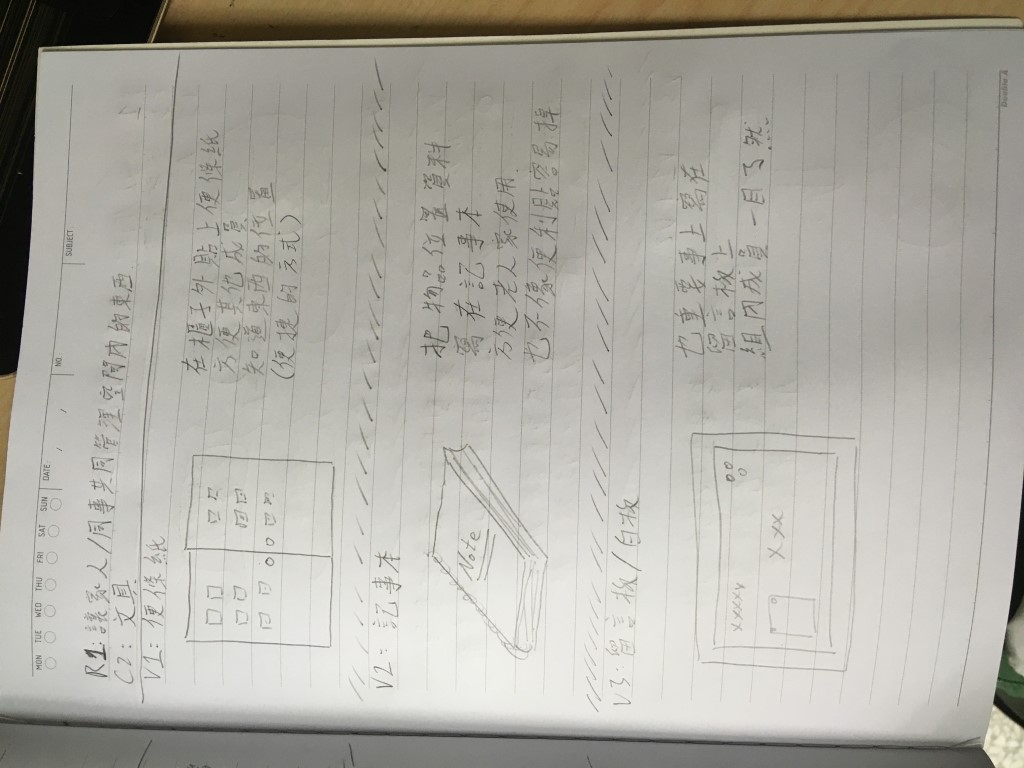 MON TUE WED THU FRI SAT SUN DATE: / / NO. SUBJECT:
R1: 讓家人/同事共同管理空間內的東西.
C2: 文具
V1: 便條紙
在櫃子外貼上便條紙
方便其他成員
知道東西的位置
(便捷的方式)
V2: 記事本
Note
把物品位置資料
寫在記事本
方便老人家使用.
也不像便利貼容易掉
V3: 留言板/白板
xxxxx
xxx
也重要事上寫在
留言板上
組內成員一目了然
Double A